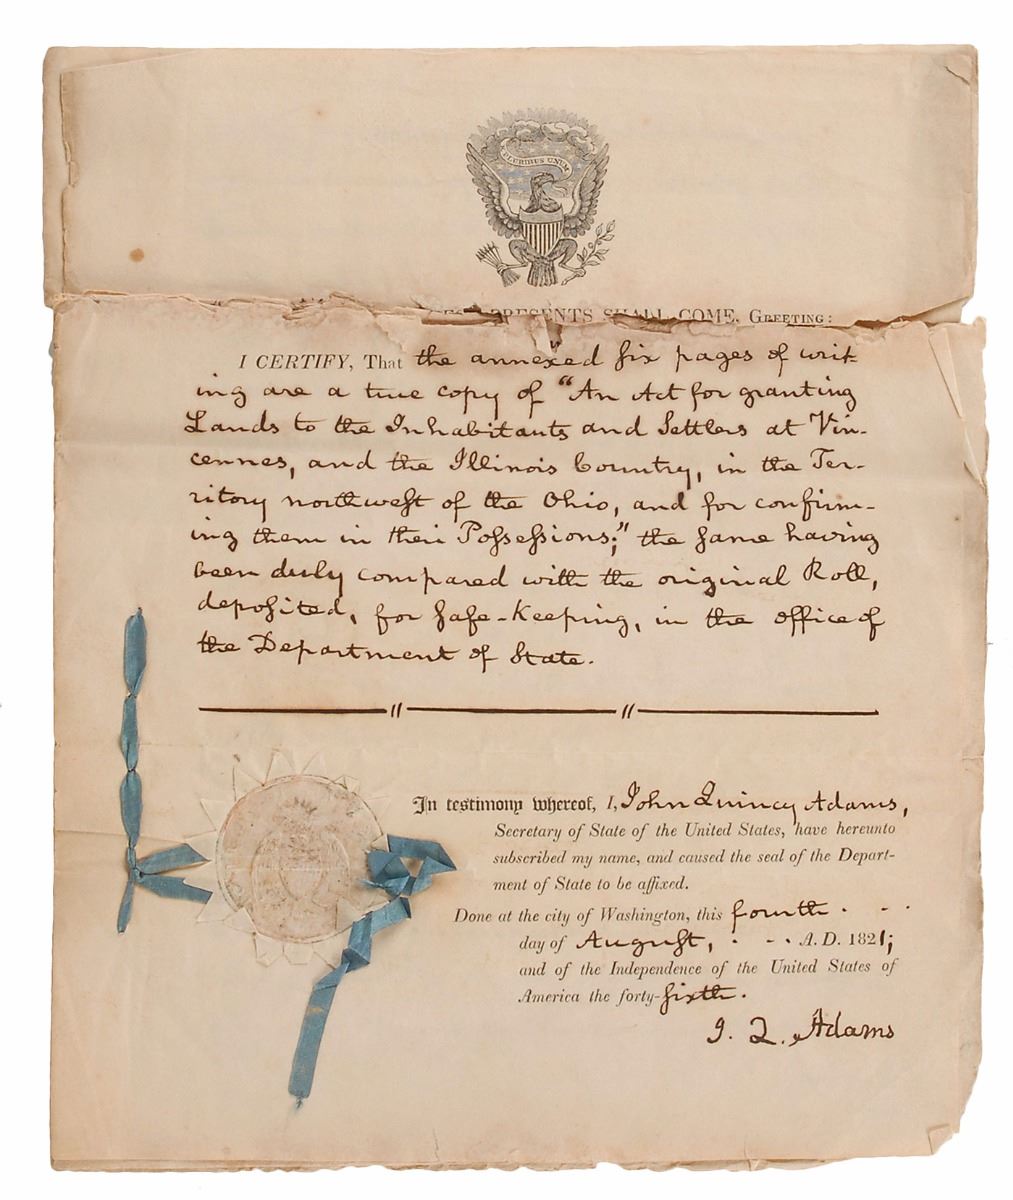 PLURIBUS UNUM
PRESENTS SHALL COME, GREETING:
I CERTIFY, That the annexed six pages of writ-
ing are a true copy of "An Act for granting
Lands to the Inhabitants and Settlers at Vin-
cennes, and the Illinois Country, in the Ter-
ritory northwest of the Ohio, and for confirm-
ing them in their Possessions;" the same having
been duly compared with the original Roll,
deposited, for safe-keeping, in the office of
the Department of State.
In testimony whereof, I, John Quincy Adams,
Secretary of State of the United States, have hereunto
subscribed my name, and caused the seal of the Depart-
ment of State to be affixed.
Done at the city of Washington, this fourth . - .
day of August, . - . A. D. 1821;
and of the Independence of the United States of
America the forty-sixth.
J. Q. Adams